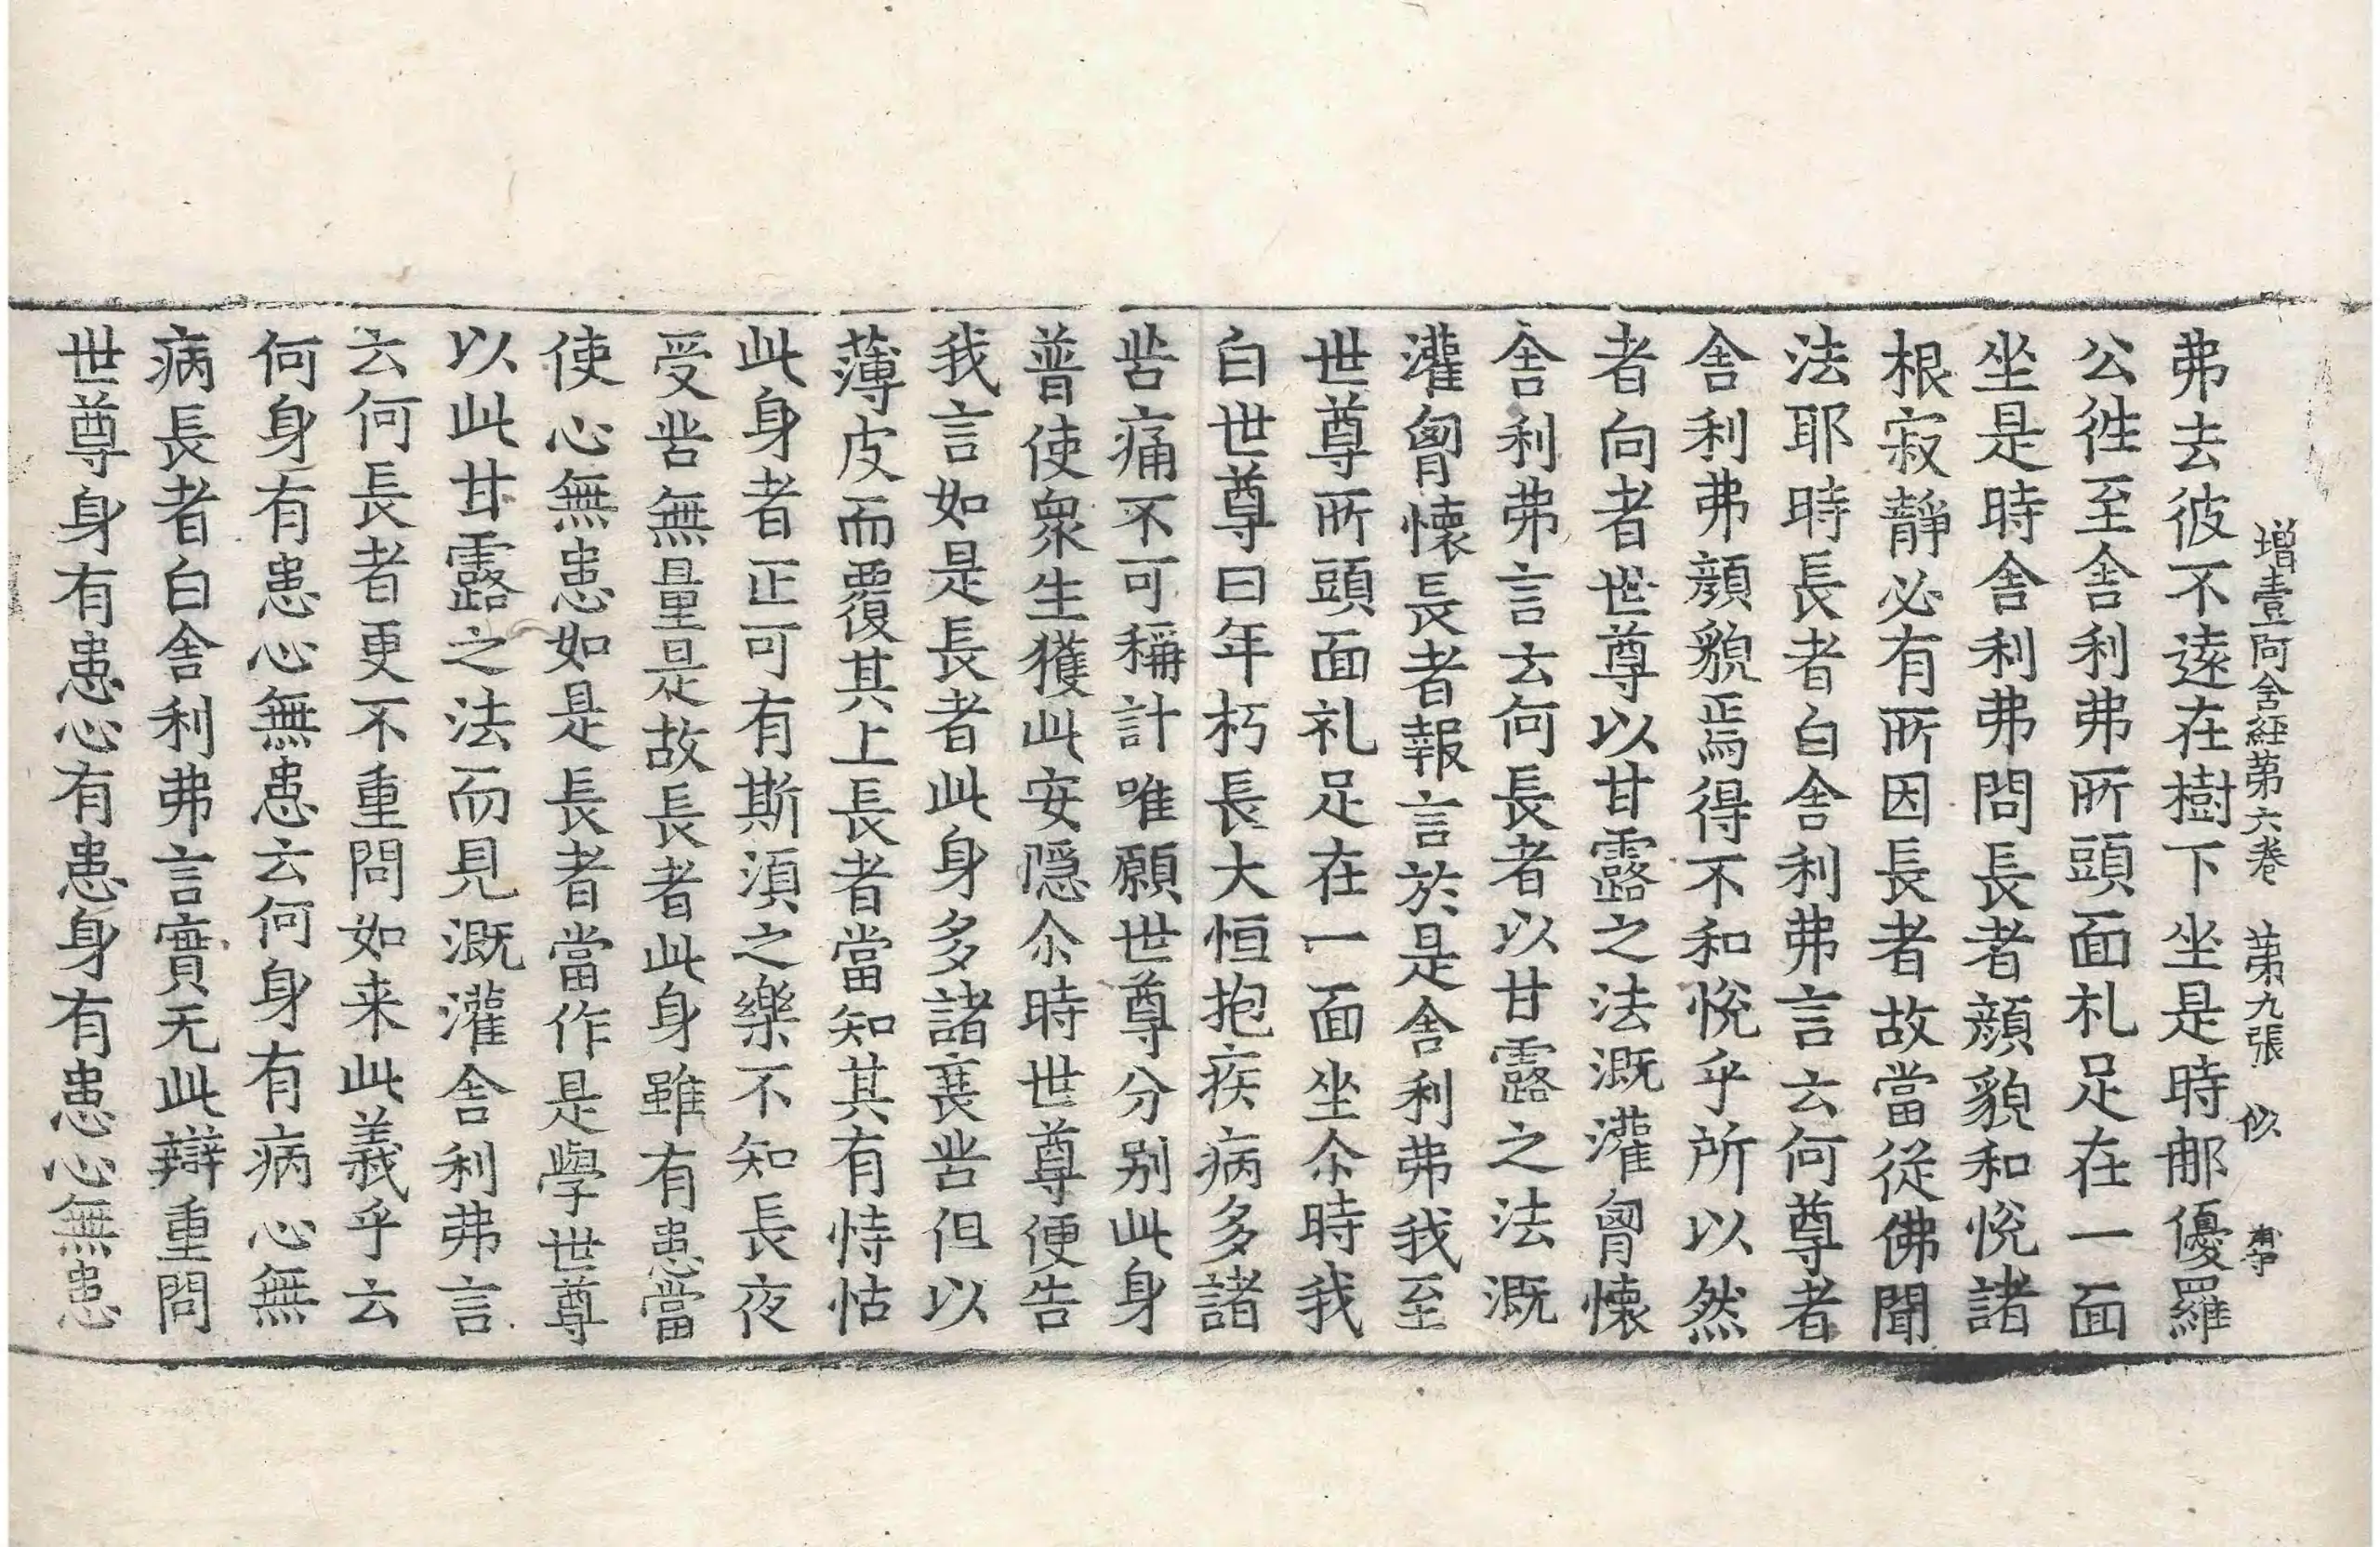 增壹阿含經第六卷 第九張 似
弗去彼不遠在樹下坐是時那優羅
公往至舍利弗所頭面礼足在一面
坐是時舍利弗問長者顔貌和悅諸
根寂靜必有所因長者故當從佛聞
法耶時長者白舍利弗言云何尊者
舍利弗顔貌焉得不和悅乎所以然
者向者世尊以甘露之法溉灌胷懷
舍利弗言云何長者以甘露之法溉
灌胷懷長者報言於是舍利弗我至
世尊所頭面礼足在一面坐尒時我
白世尊曰年朽長大恒抱疾病多諸
苦痛不可稱計唯願世尊分别此身
普使衆生獲此安隱尒時世尊便告
我言如是長者此身多諸衰苦但以
薄皮而覆其上長者當知其有恃怙
此身者正可有斯湏之樂不知長夜
受苦無量是故長者此身雖有患當
使心無患如是長者當作是學世尊
以此甘露之法而見溉灌舍利弗言
云何長者更不重問如来此義乎云
何身有患心無患云何身有病心無
病長者白舍利弗言實无此辯重問
世尊身有患心有患身有患心無患